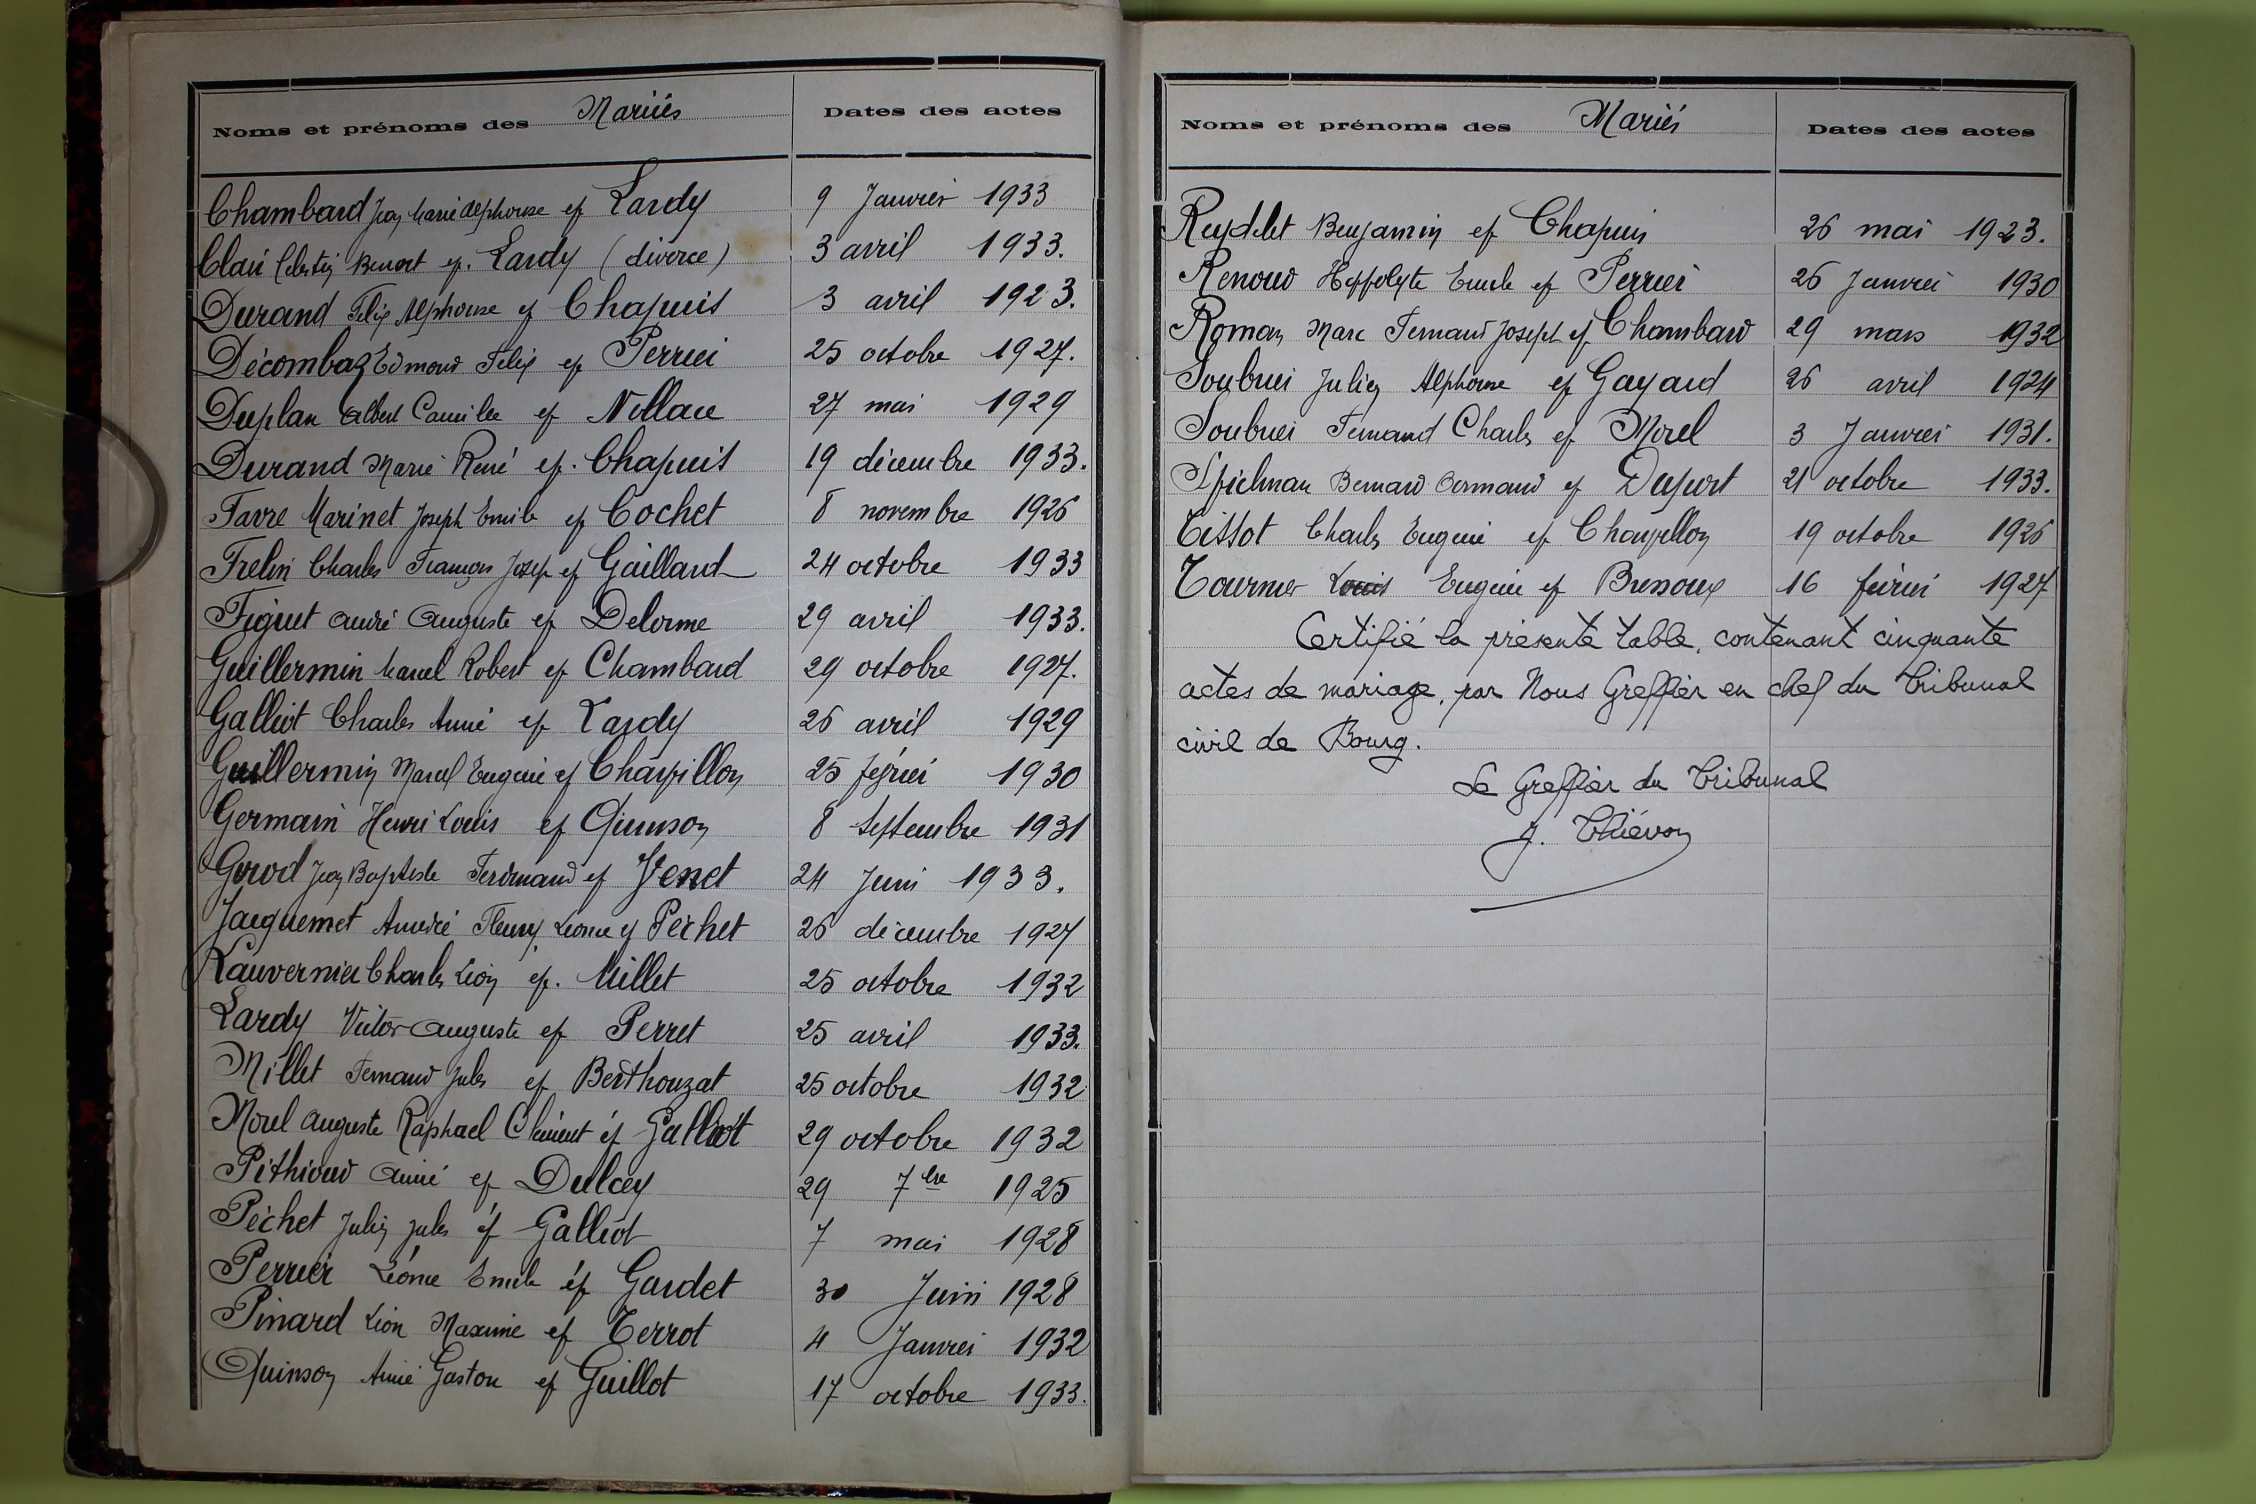 Noms et prénoms des Mariés Dates des actes
Chambard Jean Marie Alphonse ep Lardy 9 Janvier 1933
Clair Célestin Benoit ep. Lardy (divorce) 3 avril 1933.
Durand Félix Alphonse ep Chapuis 3 avril 1923.
Décombaz Edmond Félix ep Perrier 25 octobre 1927.
Duplan Albert Camille ep 27 mai 1929
Durand Marie René ep. Chapuis 19 décembre 1933.
Favre Marinet Joseph Emile ep Cochet 8 novembre 1926
Frelin Charles François Josep ep Gaillard 24 octobre 1933
Figuet André Auguste ep Delorme 29 avril 1933.
Guillermin Marcel Robert ep Chambard 29 octobre 1927.
Galliot Charles Aimé ep Lardy 26 avril 1929
Guillermin Marcel Eugène ep Charpillon 25 février 1930
Germain Henri Louis ep Quinson 8 Septembre 1931
Girod Jean Baptiste Ferdinand ep Venet 24 Juin 1933.
Jacquemet Fleury Léonce ep Péchet 26 décembre 1927
Lauvernier Charles Léon ep. Millet 25 octobre 1932
Lardy Victor Auguste ep Perret 25 avril 1933.
Millet Fernand Jules ep Berthouzat 25 octobre 1932
Morel Auguste Raphael Clément ép Galliot 29 octobre 1932
Pithioud Aimé ep Dulcey 29 7bre 1925
Péchet Julien Jules ép Galliot 7 mai 1928
Perrier Léonce Emile ép Gardet 30 Juin 1928
Pinard Léon Maxime ep Terrot 4 Janvier 1932
Quinson Aimé Gaston ep Guillot 17 octobre 1933.
Noms et prénoms des Mariés Dates des actes
Reydelet Benjamin ep Chapuis 26 mai 1923.
Renoud Hyppolyte Emile ep Perrier 26 Janvier 1930
Roman Marc Fernand Joseph ep Chambard 29 mars 1932
Soubrier Julien Alphonse ep Gayard 26 avril 1924
Soubrier Fernand Charles ep Morel 3 Janvier 1931.
Spielman Bernard Armand ep Duport 21 octobre 1933.
Tissot Charles Eugène ep Charpillon 19 octobre 1926
Tournier Louis Eugène ep Bressoux 16 février 1927
Certifié la présente table, contenant cinquante
actes de mariage, par Nous Greffier en chef du Tribunal
civil de Bourg.
Le Greffier du Tribunal
J. Thiévon